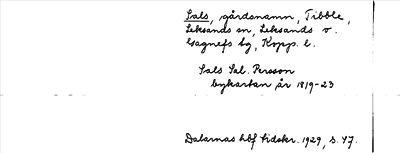 Sals, gårdsnamn, Tibble,
Leksands sn, Leksands o.
Gagnefs tg, Kopp. l.
Sals Sal. Persson
bykartan år 1819-23
Dalarnas hbf tidskr. 1929, s. 47.